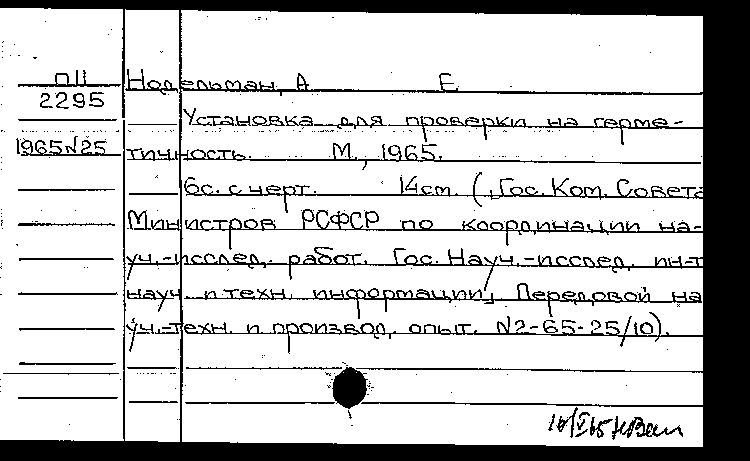 ПЦ Нодельман, А Е
2295
Установка для проверки на герме-
1965 №25 тичность. М., 1965.
6с. с черт. 14см. (Гос. Ком. Совета
Министров РСФСР по координации на-
уч.-исслед. работ. Гос. Науч.-исслед. ин-т
науч. и техн. информации. Передовой на
уч.-техн. и производ. опыт. №2-65-25/10).